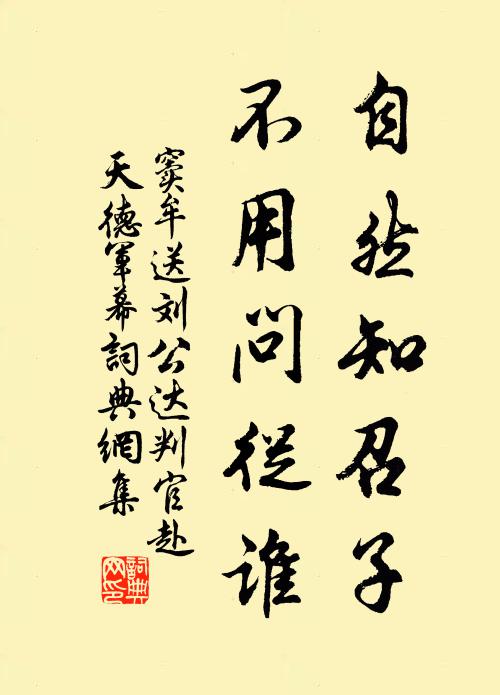 自然知召子
不用问從谁
窦牟送刘公达判官赴
天德军幕詞典網集
詞典
网印